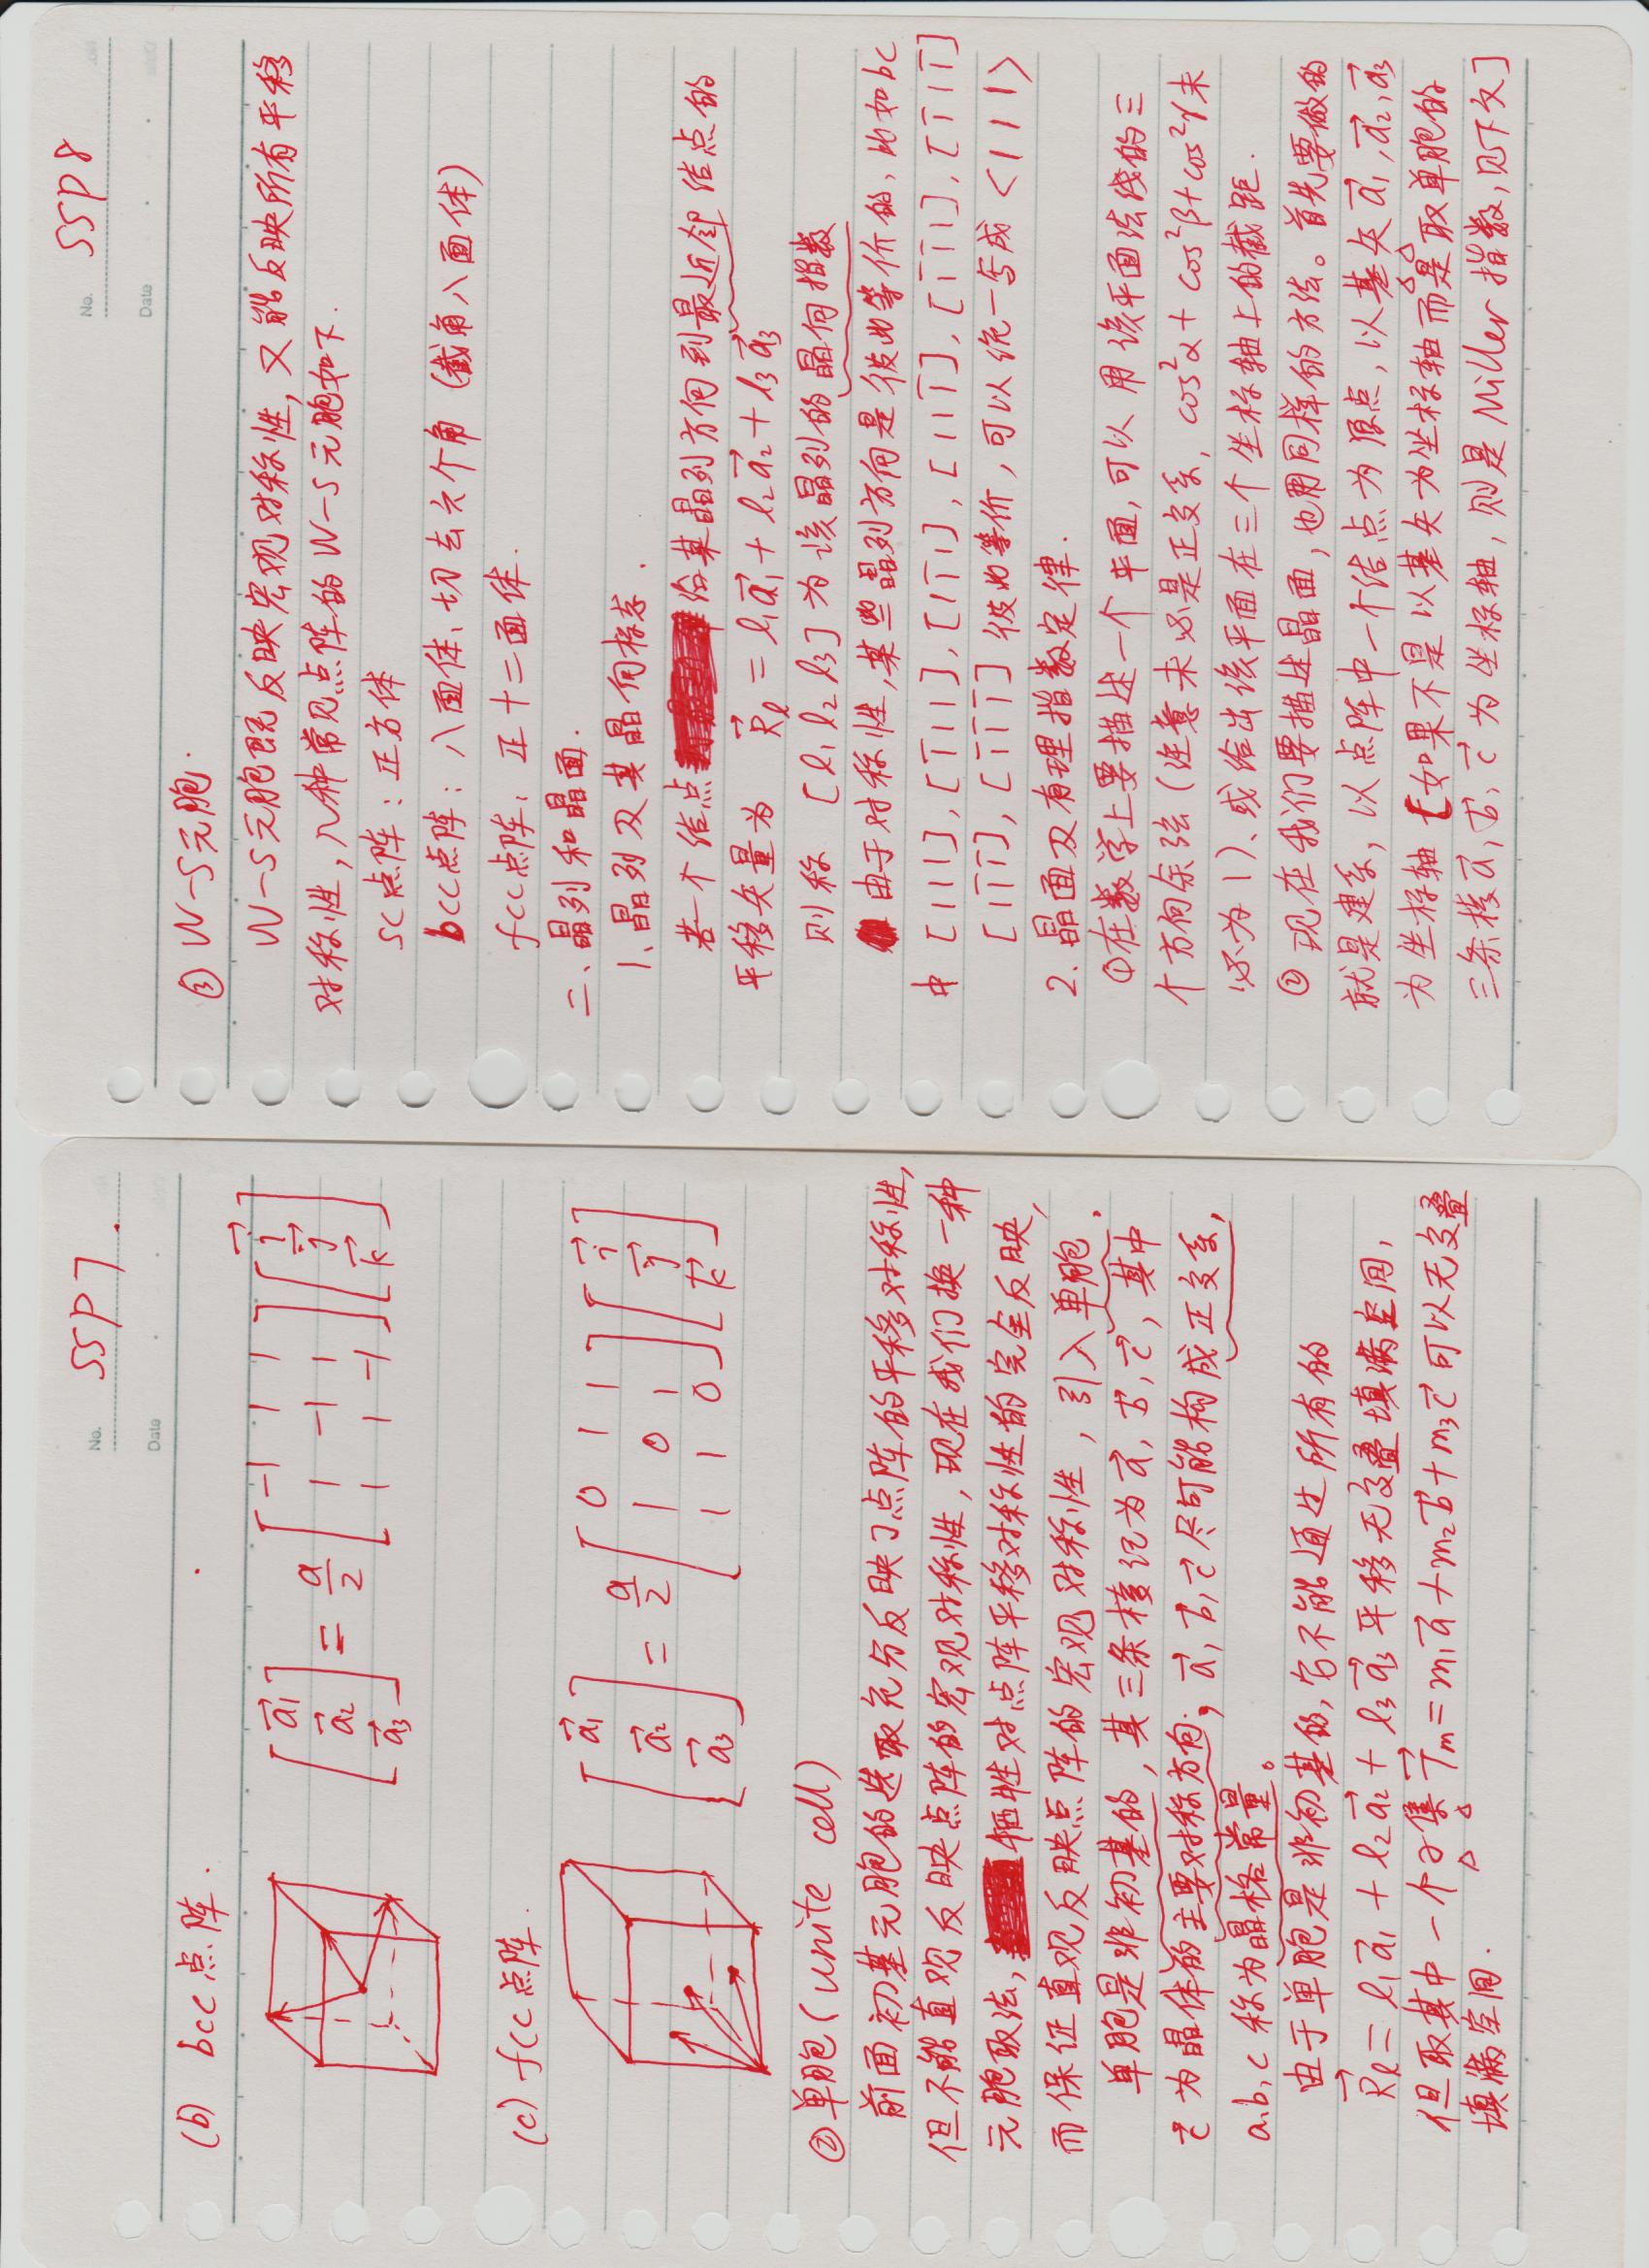 No. SSP7.
Date
(b) bcc点阵.
[a⃗₁ a⃗₂ a⃗₃] = a/2 [-1 1 1; 1 -1 1; 1 1 -1] [i⃗ j⃗ k⃗]
(c) fcc点阵.
[a⃗₁ a⃗₂ a⃗₃] = a/2 [0 1 1; 1 0 1; 1 1 0] [i⃗ j⃗ k⃗]
②单胞(unite cell)
前面初基元胞的选取充分反映了点阵的平移对称性,
但不能直观反映点阵的宏观对称性, 现在我们换一种
元胞取法, 牺牲对点阵平移对称性的完全反映,
而保证直观反映点阵的宏观对称性, 引入单胞.
单胞是非初基的, 其三条棱记为a⃗, b⃗, c⃗, 其中
c⃗为晶体的主要对称方向; a⃗, b⃗, c⃗尽可能构成正交系,
a, b, c 称为晶格常量。
由于单胞是非初基的, 它不能通过所有的
R⃗ₗ = l₁a⃗₁ + l₂a⃗₂ + l₃a⃗₃ 平移无交叠填满空间,
但取其中一个子集 T⃗ₘ = m₁a⃗ + m₂b⃗ + m₃c⃗ 可以无交叠
填满空间.
No. SSP8
Date
③ W-S元胞.
W-S元胞既反映宏观对称性, 又能反映所有平移
对称性, 几种常见点阵的W-S元胞如下.
sc点阵: 正方体
bcc点阵: 八面体、切去六个角 (截角八面体)
fcc点阵: 正十二面体.
二、晶列和晶面.
1、晶列及其晶向标志.
若一个结点沿某晶列方向到最近邻结点的
平移矢量为 R⃗ₗ = l₁a⃗₁ + l₂a⃗₂ + l₃a⃗₃
则称 [l₁ l₂ l₃] 为该晶列的晶向指数
由于对称性, 某些晶列方向是彼此等价的, 比如bc
中 [111], [1̄11], [11̄1], [111̄], [1̄1̄1], [1̄11̄]
[11̄1̄], [1̄1̄1̄] 彼此等价, 可以统一写成 <111>
2. 晶面及有理指数定律.
①在数学上要描述一个平面, 可以用该平面法线的三
个方向余弦 (注意未必是正交系, cos²α + cos²β + cos²γ未
必为1)、或给出该平面在三个坐标轴上的截距.
② 现在我们要描述晶面, 也用同样的方法。首先要做的
就是建系, 以点阵中一个结点为原点, 以基矢a⃗₁, a⃗₂, a⃗₃
为坐标轴 [如果不是以基矢为坐标轴而是取单胞的
三条棱a⃗, b⃗, c⃗ 为坐标轴, 则是Miller指数, 见下文]